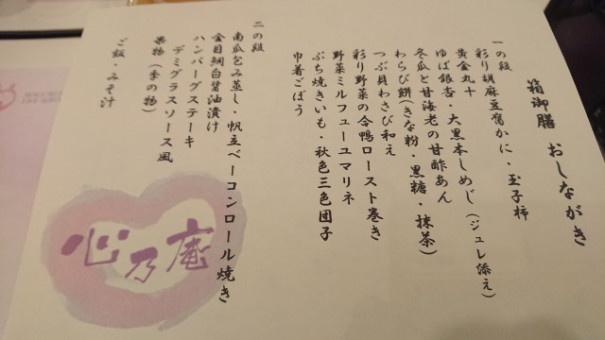 箱御膳 おしながき
一の段
彩り胡麻豆腐かに・玉子柿
黄金丸十
ゆば銀杏・大黒本しめじ(ジュレ添え)
冬瓜と甘海老の甘酢あん
わらび餅(きな粉・黒糖・抹茶)
つぶ貝わさび和え
彩り野菜の合鴨ロースト巻き
野菜ミルフューユマリネ
ぷち焼きいも・秋色三色団子
巾着ごぼう
二の段
南瓜包み蒸し・帆立ベーコンロール焼き
金目鯛白醤油漬け
ハンバーグステーキ
デミグラスソース風
果物(季の物)
ご飯・みそ汁
心乃庵